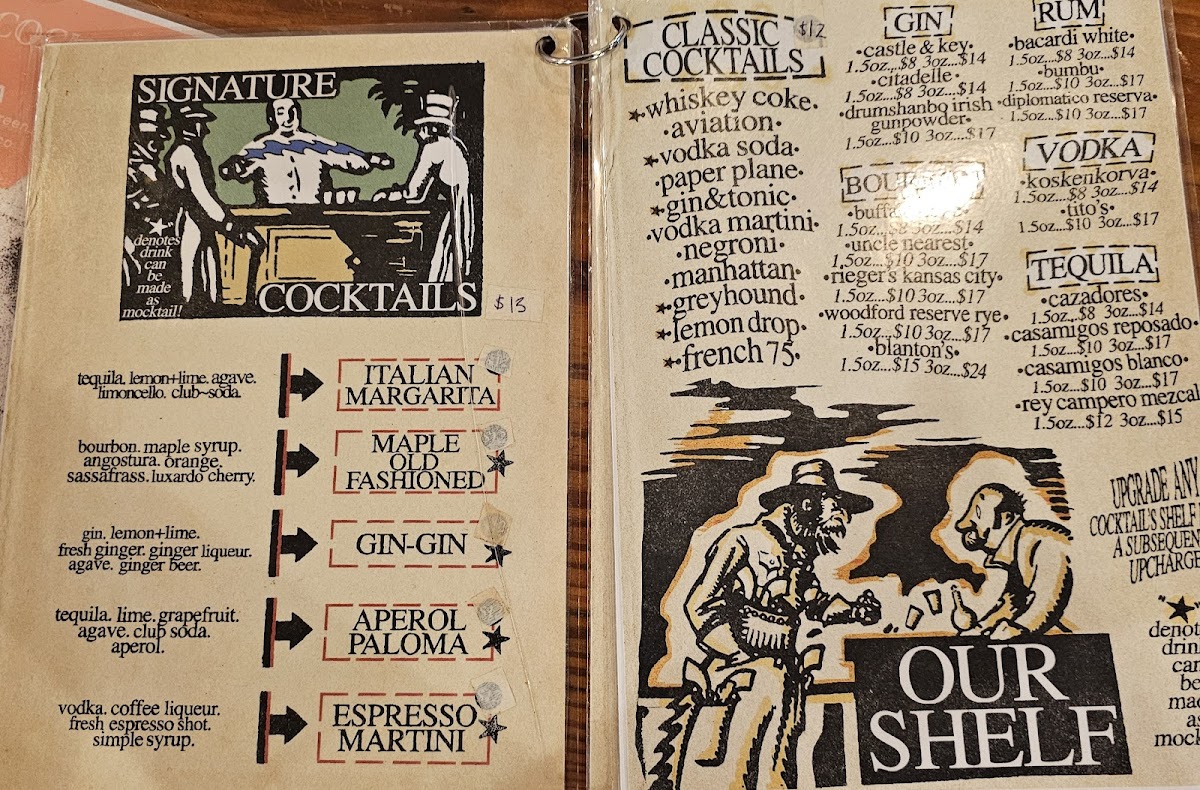 SIGNATURE
★
denotes
drink
can
be
made
as
mocktail!
COCKTAILS
$13
tequila. lemon+lime. agave.
limoncello. club~soda.
ITALIAN
MARGARITA
bourbon. maple syrup.
angostura. orange.
sassafrass. luxardo cherry.
MAPLE
OLD
FASHIONED ★
gin. lemon+lime.
fresh ginger. ginger liqueur.
agave. ginger beer.
GIN-GIN ★
tequila. lime. grapefruit.
agave. club soda.
aperol.
APEROL
PALOMA ★
vodka. coffee liqueur.
fresh espresso shot.
simple syrup.
ESPRESSO
MARTINI ★
CLASSIC $12
COCKTAILS
★whiskey coke•
•aviation•
★vodka soda•
•paper plane•
★gin&tonic•
•vodka martini•
•negroni•
•manhattan•
★greyhound•
★lemon drop•
★french 75•
GIN
•castle & key•
1.5oz...$8 3oz...$14
•citadelle•
1.5oz...$8 3oz...$14
•drumshanbo irish
gunpowder•
1.5oz...$10 3oz...$17
1.5oz...$8 3oz...$14
•uncle nearest•
1.5oz...$10 3oz...$17
•rieger's kansas city•
1.5oz...$10 3oz...$17
•woodford reserve rye•
1.5oz...$10 3oz...$17
•blanton's•
1.5oz...$15 3oz...$24
RUM
•bacardi white•
1.5oz...$8 3oz...$14
•bumbu•
1.5oz...$10 3oz...$17
•diplomatico reserva•
1.5oz...$10 3oz...$17
VODKA
•koskenkorva•
1.5oz...$8 3oz...$14
•tito's•
1.5oz...$10 3oz...$17
TEQUILA
•cazadores•
1.5oz...$8 3oz...$14
•casamigos reposado•
1.5oz...$10 3oz...$17
•casamigos blanco•
1.5oz...$10 3oz...$17
•rey campero mezcal
1.5oz...$12 3oz...$15
UPGRADE ANY
COCKTAIL'S SHELF
A
UPCHARGE
OUR
SHELF
"★
can